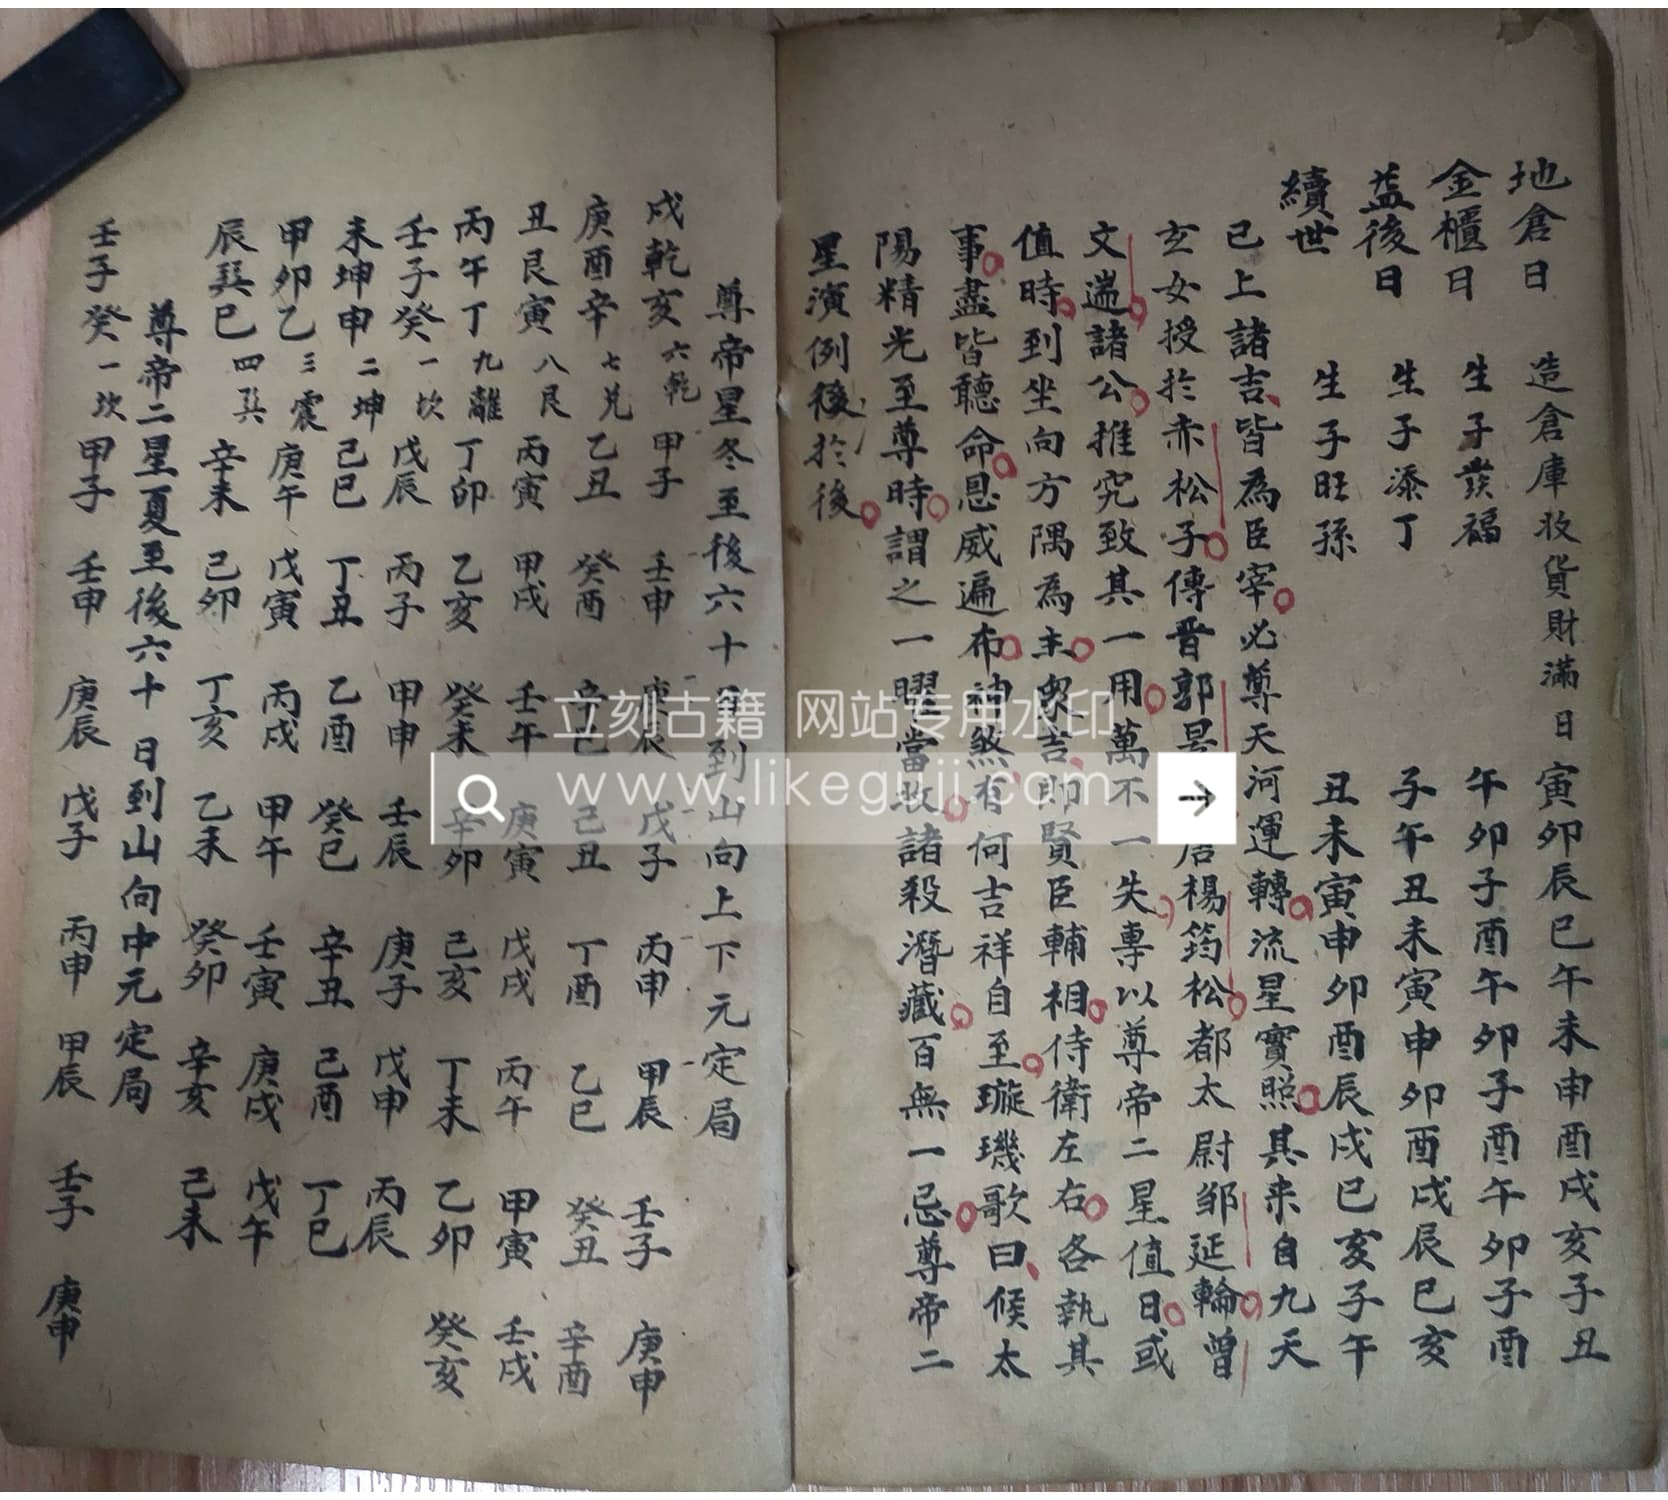 地倉日　造倉庫收貨財滿日寅卯辰巳午未申酉戌亥子丑
金櫃日　生子發福　午卯子酉午卯子酉午卯子酉
益後日　生子添丁　子午丑未寅申卯酉戌辰巳亥
續世　生子旺孫　丑未寅申卯酉辰戌巳亥子午
已上諸吉皆為臣宰必尊天河運轉流星寶照其来自九天
玄女授於赤松子傳晋郭景居楊筠松都太尉邹延輪曾
文遄諸公推究致其一用萬不一失專以尊帝二星值日或
值時到坐向方隅為主衆吉即賢臣輔相侍衛左右各執其
事盡皆聽命恩威遍布神煞有何吉祥自至璇璣歌曰候太
陽精光至尊時謂之一曜當收諸殺潛藏百無一忌尊帝二
星演例後於後
尊帝星冬至後六十日到山向上下元定局
戌乾亥六乾　甲子　壬申　庚辰　戊子　丙申　甲辰　壬子　庚申
庚酉辛七兑　乙丑　癸酉　辛巳　己丑　丁酉　乙巳　癸丑　辛酉
丑艮寅八艮　丙寅　甲戌　壬午　庚寅　戊戌　丙午　甲寅　壬戌
丙午丁九離　丁卯　乙亥　癸未　辛卯　己亥　丁未　乙卯　癸亥
壬子癸一坎　戊辰　丙子　甲申　壬辰　庚子　戊申　丙辰
未坤申二坤　己巳　丁丑　乙酉　癸巳　辛丑　己酉　丁巳
甲卯乙三震　庚午　戊寅　丙戌　甲午　壬寅　庚戌　戊午
辰巽巳四巽　辛未　己卯　丁亥　乙未　癸卯　辛亥　己未
尊帝二星夏至後六十日到山向中元定局
壬子癸一坎　甲子　壬申　庚辰　戊子　丙申　甲辰　壬子　庚申
立刻古籍 网站专用水印
www.likeguji.com